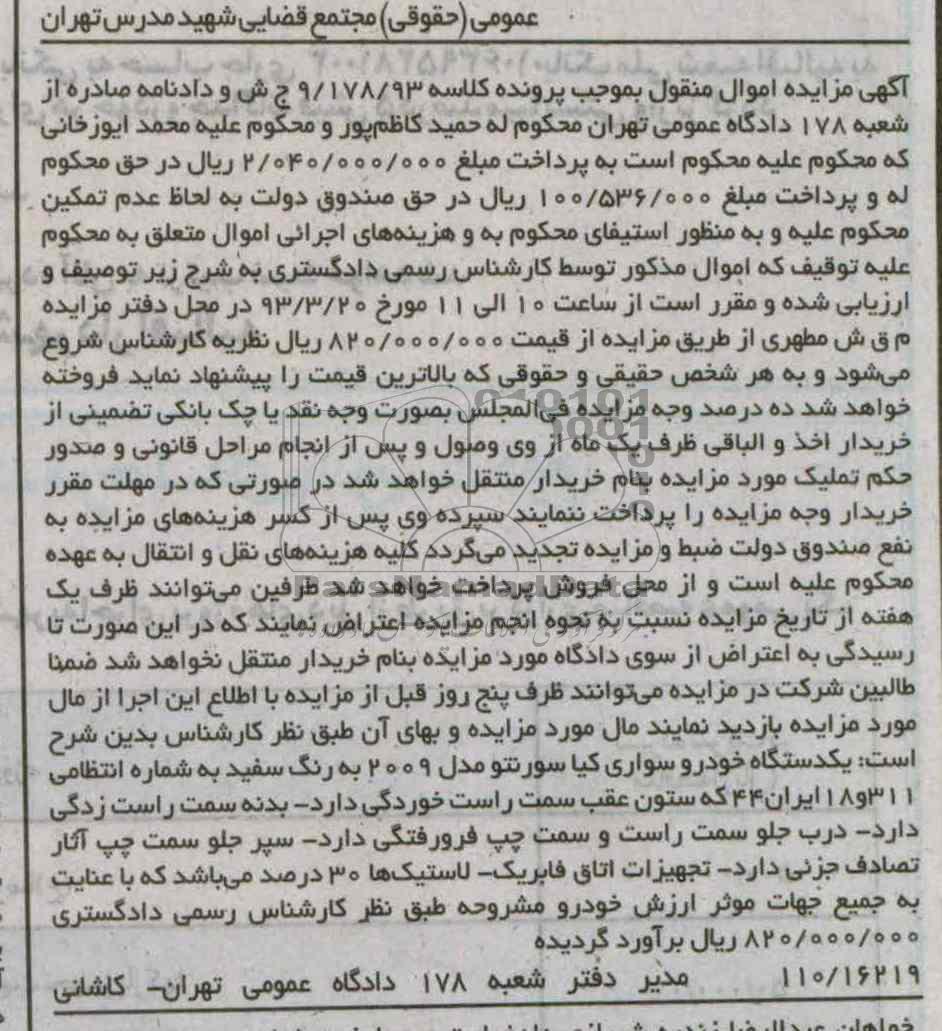 عمومی (حقوقی) مجتمع قضایی شهید مدرس تهران
آگهی مزایده اموال منقول بموجب پرونده کلاسه ۹/۱۷۸/۹۳ ج ش و دادنامه صادره از
شعبه ۱۷۸ دادگاه عمومی تهران محکوم له حمید کاظم‌پور و محکوم علیه محمد ایوزخانی
که محکوم علیه محکوم است به پرداخت مبلغ ۲/۰۴۰/۰۰۰/۰۰۰ ریال در حق محکوم
له و پرداخت مبلغ ۱۰۰/۵۳۶/۰۰۰ ریال در حق صندوق دولت به لحاظ عدم تمکین
محکوم علیه و به منظور استیفای محکوم به و هزینه‌های اجرائی اموال متعلق به محکوم
علیه توقیف که اموال مذکور توسط کارشناس رسمی دادگستری به شرح زیر توصیف و
ارزیابی شده و مقرر است از ساعت ۱۰ الی ۱۱ مورخ ۹۳/۳/۲۰ در محل دفتر مزایده
م ق ش مطهری از طریق مزایده از قیمت ۸۲۰/۰۰۰/۰۰۰ ریال نظریه کارشناس شروع
می‌شود و به هر شخص حقیقی و حقوقی که بالاترین قیمت را پیشنهاد نماید فروخته
خواهد شد ده درصد وجه مزایده فی‌المجلس بصورت وجه نقد یا چک بانکی تضمینی از
خریدار اخذ و الباقی ظرف یک ماه از وی وصول و پس از انجام مراحل قانونی و صدور
حکم تملیک مورد مزایده بنام خریدار منتقل خواهد شد در صورتی که در مهلت مقرر
خریدار وجه مزایده را پرداخت ننمایند سپرده وی پس از کسر هزینه‌های مزایده به
نفع صندوق دولت ضبط و مزایده تجدید می‌گردد کلیه هزینه‌های نقل و انتقال به عهده
محکوم علیه است و از محل فروش پرداخت خواهد شد طرفین می‌توانند ظرف یک
هفته از تاریخ مزایده نسبت به نحوه انجم مزایده اعتراض نمایند که در این صورت تا
رسیدگی به اعتراض از سوی دادگاه مورد مزایده بنام خریدار منتقل نخواهد شد ضمنا
طالبین شرکت در مزایده می‌توانند ظرف پنج روز قبل از مزایده با اطلاع این اجرا از مال
مورد مزایده بازدید نمایند مال مورد مزایده و بهای آن طبق نظر کارشناس بدین شرح
است: یکدستگاه خودرو سواری کیا سورنتو مدل ۲۰۰۹ به رنگ سفید به شماره انتظامی
۳۱۱و۱۸ ایران۴۴ که ستون عقب سمت راست خوردگی دارد- بدنه سمت راست زدگی
دارد- درب جلو سمت راست و سمت چپ فرورفتگی دارد- سپر جلو سمت چپ آثار
تصادف جزئی دارد- تجهیزات اتاق فابریک- لاستیک‌ها ۳۰ درصد می‌باشد که با عنایت
به جمیع جهات موثر ارزش خودرو مشروحه طبق نظر کارشناس رسمی دادگستری
۸۲۰/۰۰۰/۰۰۰ ریال برآورد گردیده
۱۱۰/۱۶۲۱۹ مدیر دفتر شعبه ۱۷۸ دادگاه عمومی تهران- کاشانی